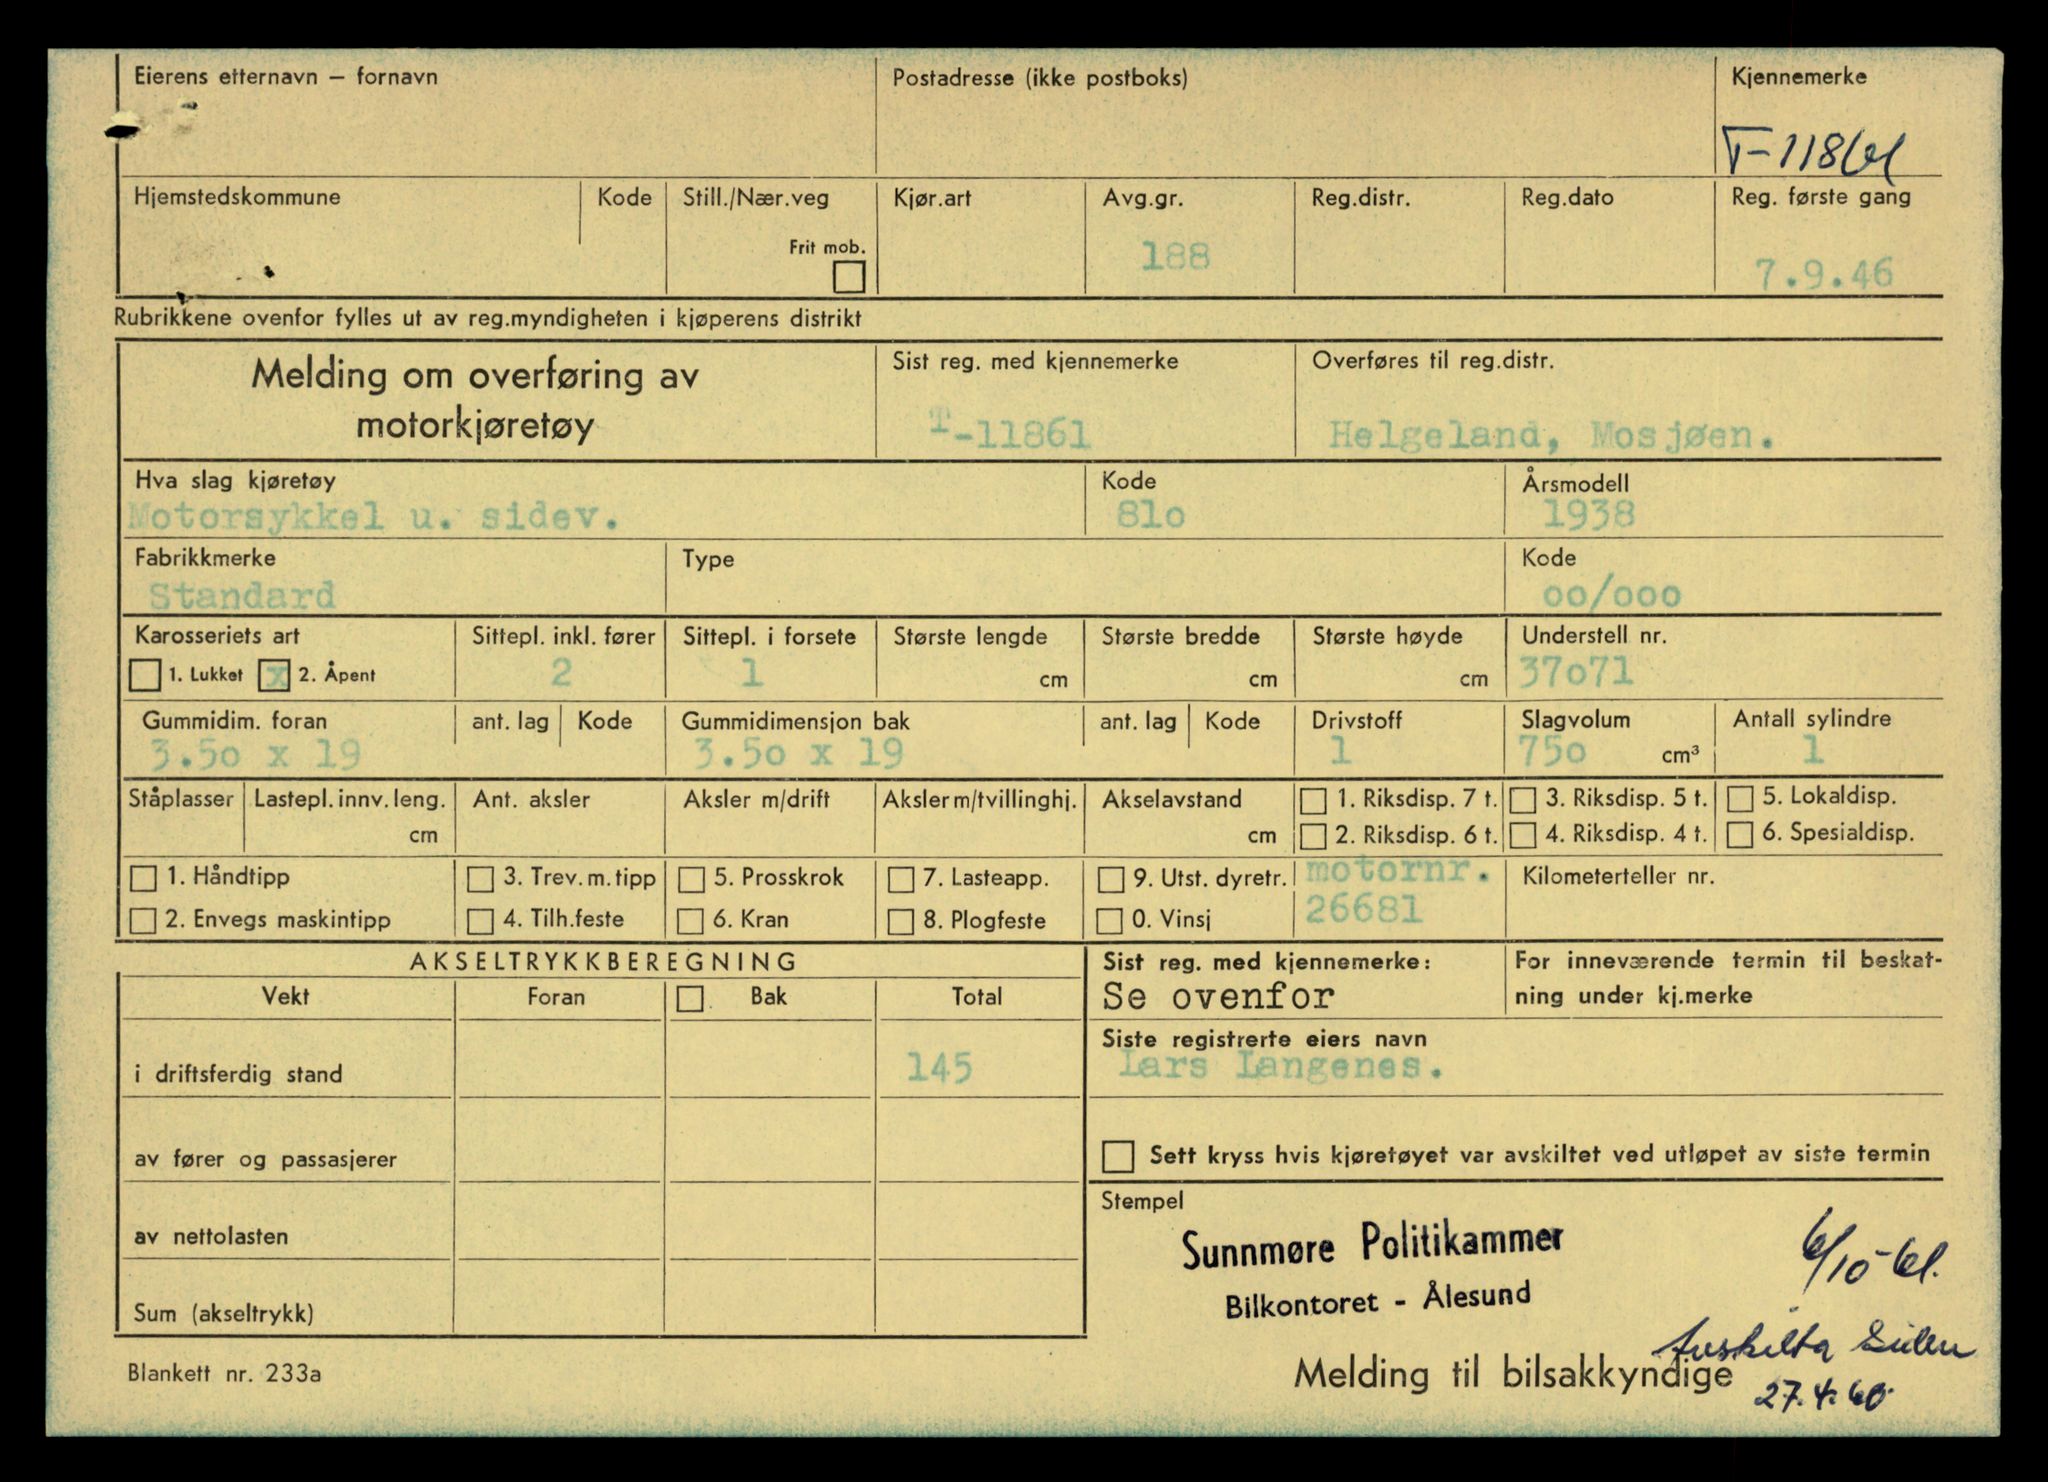 Eierens etternavn – fornavn
Postadresse (ikke postboks)
Kjennemerke
T-11861
Hjemstedskommune
Kode
Still./Nær.veg
Frit mob.
Kjør.art
Avg.gr.
188
Reg.distr.
Reg.dato
Reg. første gang
7.9.46
Rubrikkene ovenfor fylles ut av reg.myndigheten i kjøperens distrikt
Melding om overføring av
motorkjøretøy
Sist reg. med kjennemerke
T-11861
Overføres til reg.distr.
Helgeland, Mosjøen.
Hva slag kjøretøy
Motorsykkel u. sidev.
Kode
81o
Årsmodell
1938
Fabrikkmerke
Standard
Type
Kode
oo/ooo
Karosseriets art
1. Lukket x 2. Åpent
Sittepl. inkl. fører
2
Sittepl. i forsete
1
Største lengde
cm
Største bredde
cm
Største høyde
cm
Understell nr.
37o71
Gummidim. foran
3.5o x 19
ant. lag
Kode
Gummidimensjon bak
3.5o x 19
ant. lag
Kode
Drivstoff
1
Slagvolum
75o cm³
Antall sylindre
1
Ståplasser
Lastepl. innv. leng.
cm
Ant. aksler
Aksler m/drift
Aksler m/tvillinghj.
Akselavstand
cm
1. Riksdisp. 7 t.
2. Riksdisp. 6 t.
3. Riksdisp. 5 t.
4. Riksdisp. 4 t.
5. Lokaldisp.
6. Spesialdisp.
1. Håndtipp
2. Envegs maskintipp
3. Trev. m. tipp
4. Tilh.feste
5. Prosskrok
6. Kran
7. Lasteapp.
8. Plogfeste
9. Utst. dyretr.
0. Vinsj
motornr.
26681
Kilometerteller nr.
AKSELTRYKKBEREGNING
Vekt
Foran
Bak
Total
i driftsferdig stand
145
av fører og passasjerer
av nettolasten
Sum (akseltrykk)
Sist reg. med kjennemerke:
Se ovenfor
For inneværende termin til beskat-
ning under kj.merke
Siste registrerte eiers navn
Lars Langenes.
Sett kryss hvis kjøretøyet var avskiltet ved utløpet av siste termin
Stempel
Sunnmøre Politikammer
Bilkontoret - Ålesund
6/10-61.
Avskilta siden
27.4.60
Melding til bilsakkyndige
Blankett nr. 233a